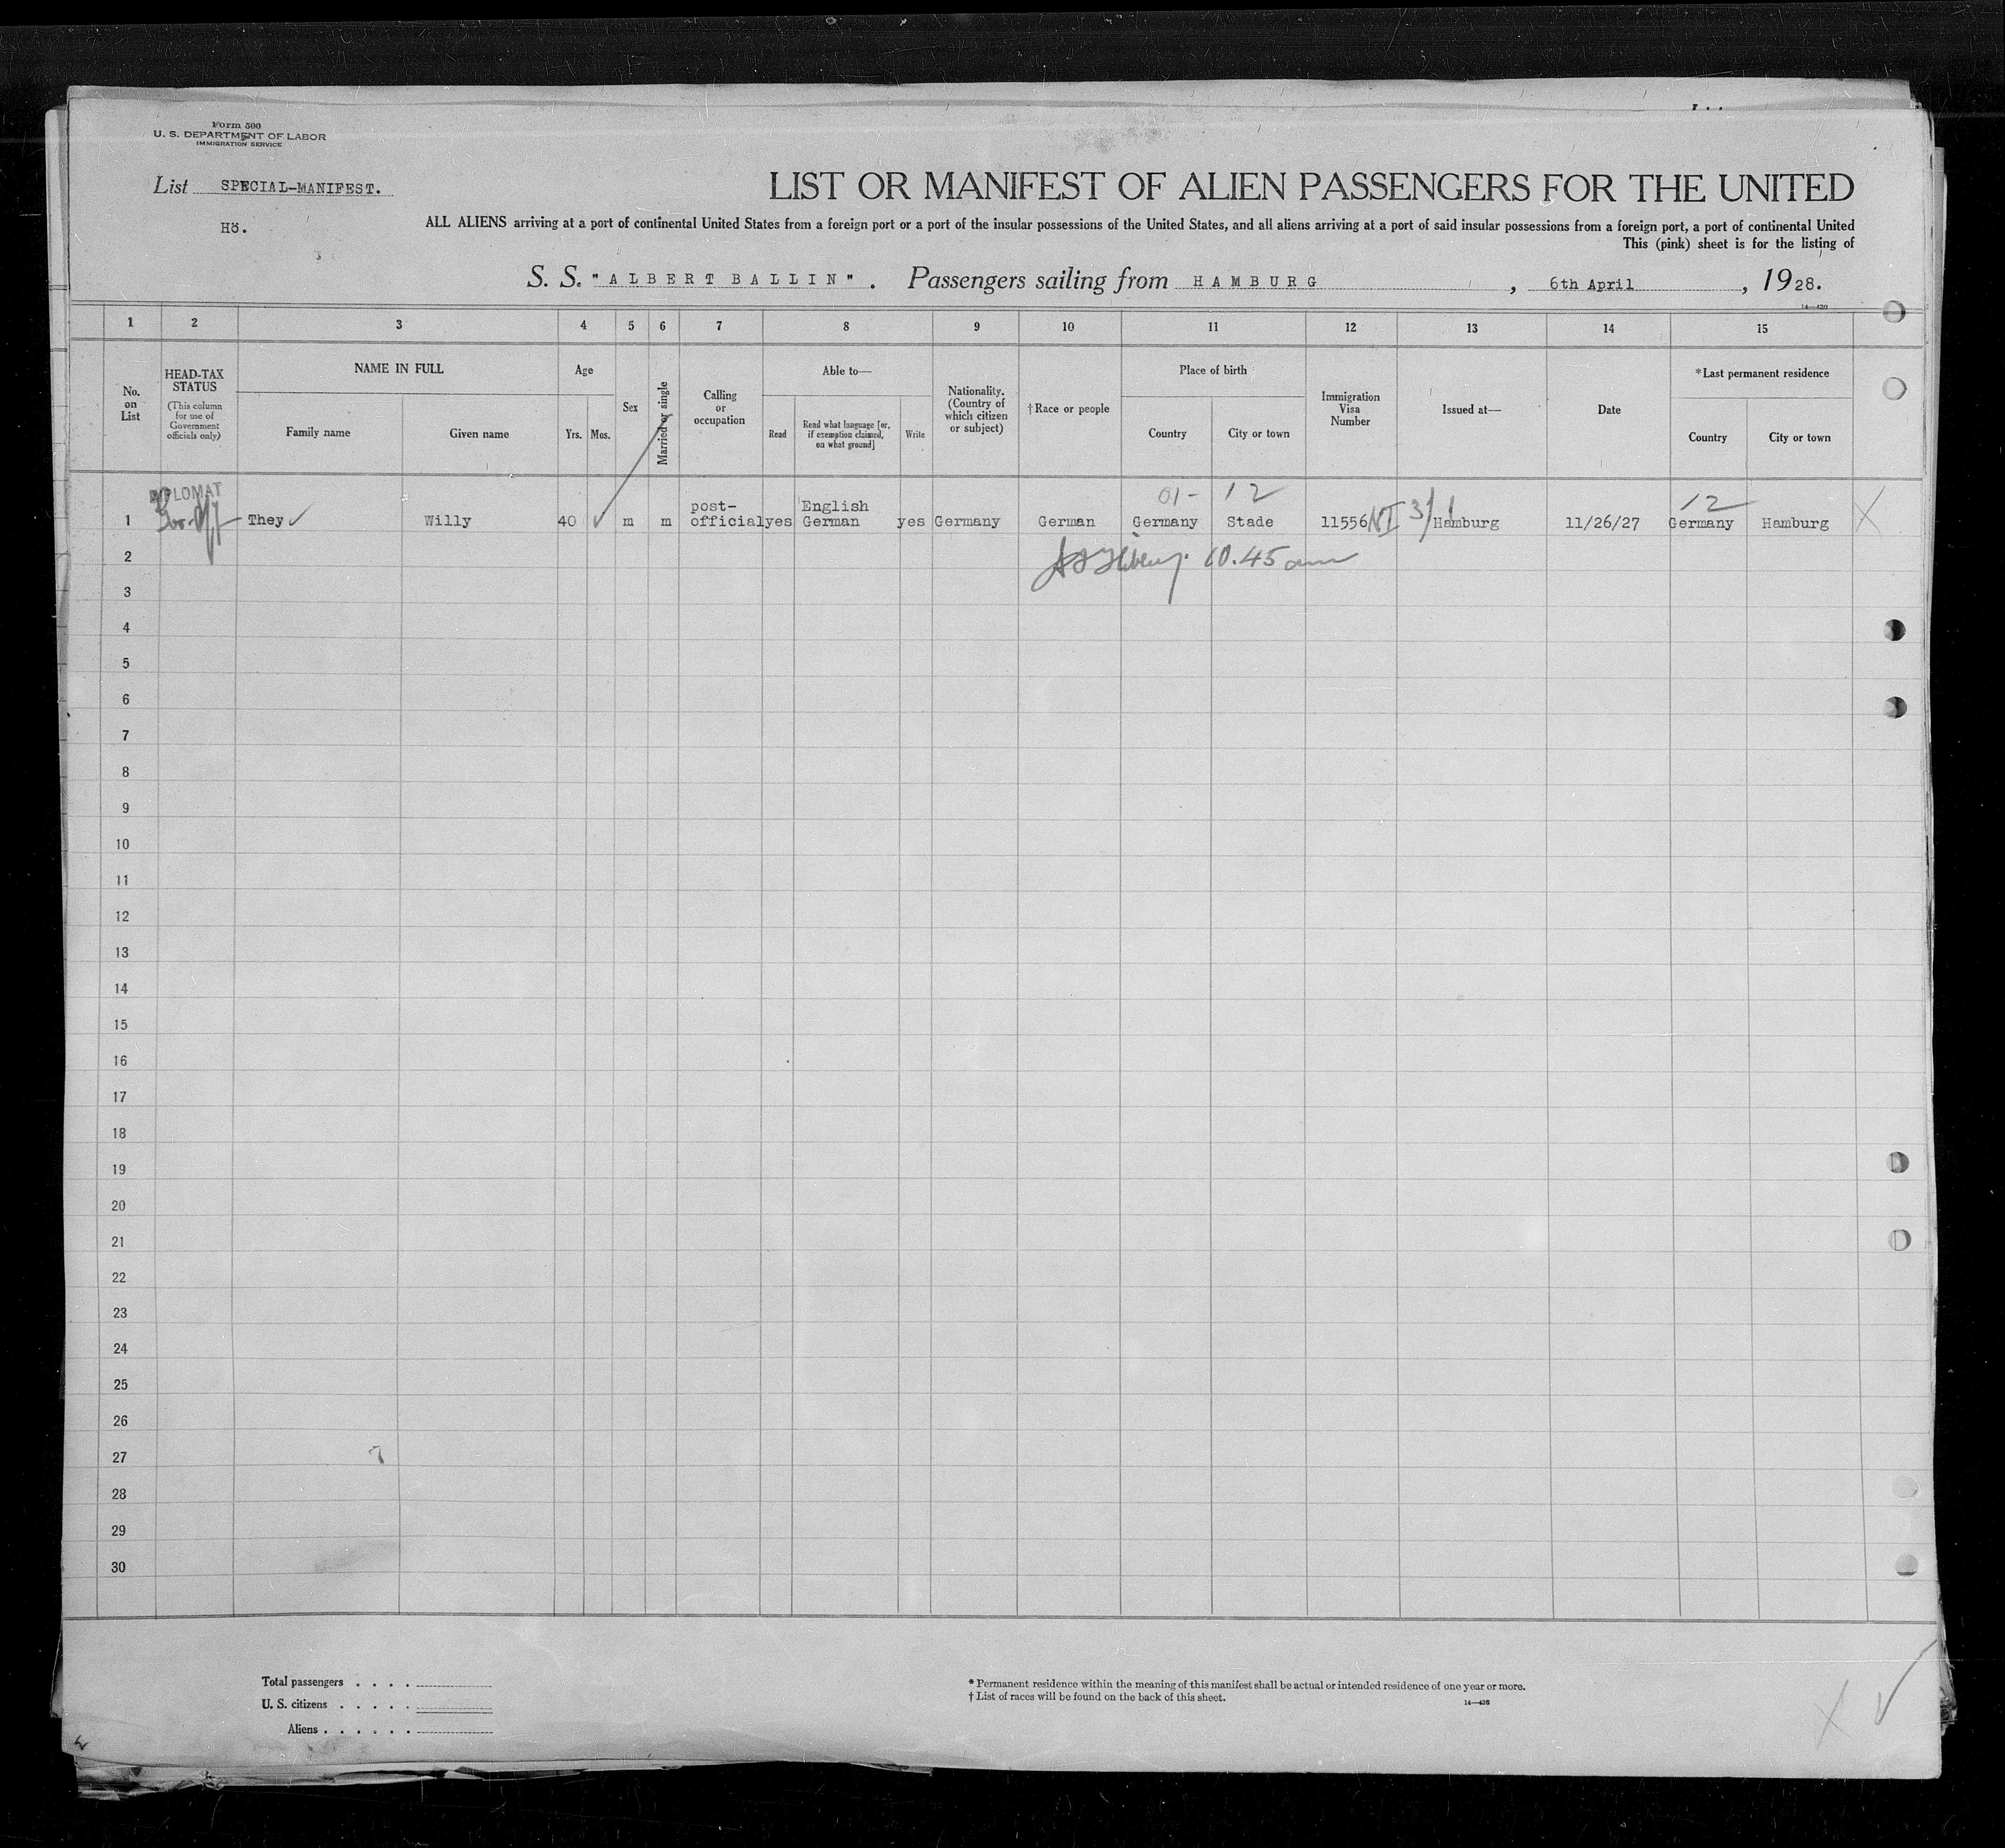 Form 500
U. S. DEPARTMENT OF LABOR
IMMIGRATION SERVICE
List SPECIAL-MANIFEST.
Hö.
LIST OR MANIFEST OF ALIEN PASSENGERS FOR THE UNITED
ALL ALIENS arriving at a port of continental United States from a foreign port or a port of the insular possessions of the United States, and all aliens arriving at a port of said insular possessions from a foreign port, a port of continental United
This (pink) sheet is for the listing of
S. S. "ALBERT BALLIN". Passengers sailing from HAMBURG, 6th April, 1928.
1 2 3 4 5 6 7 8 9 10 11 12 13 14 15
No. on List
HEAD-TAX STATUS
(This column for use of Government officials only)
NAME IN FULL
Family name
Given name
Age
Yrs. Mos.
Sex
Married or single
Calling or occupation
Able to—
Read
Read what language [or, if exemption claimed, on what ground]
Write
Nationality. (Country of which citizen or subject)
†Race or people
Place of birth
Country
City or town
Immigration Visa Number
Issued at—
Date
*Last permanent residence
Country
City or town
DIPLOMAT
01- 12 12
1 They Willy 40 m m post-official yes English German yes Germany German Germany Stade 11556 NI 3/1 Hamburg 11/26/27 Germany Hamburg X
2 10.45 am
3
4
5
6
7
8
9
10
11
12
13
14
15
16
17
18
19
20
21
22
23
24
25
26
27
28
29
30
Total passengers . . . .
U. S. citizens . . . . .
Aliens . . . . . .
* Permanent residence within the meaning of this manifest shall be actual or intended residence of one year or more.
† List of races will be found on the back of this sheet.